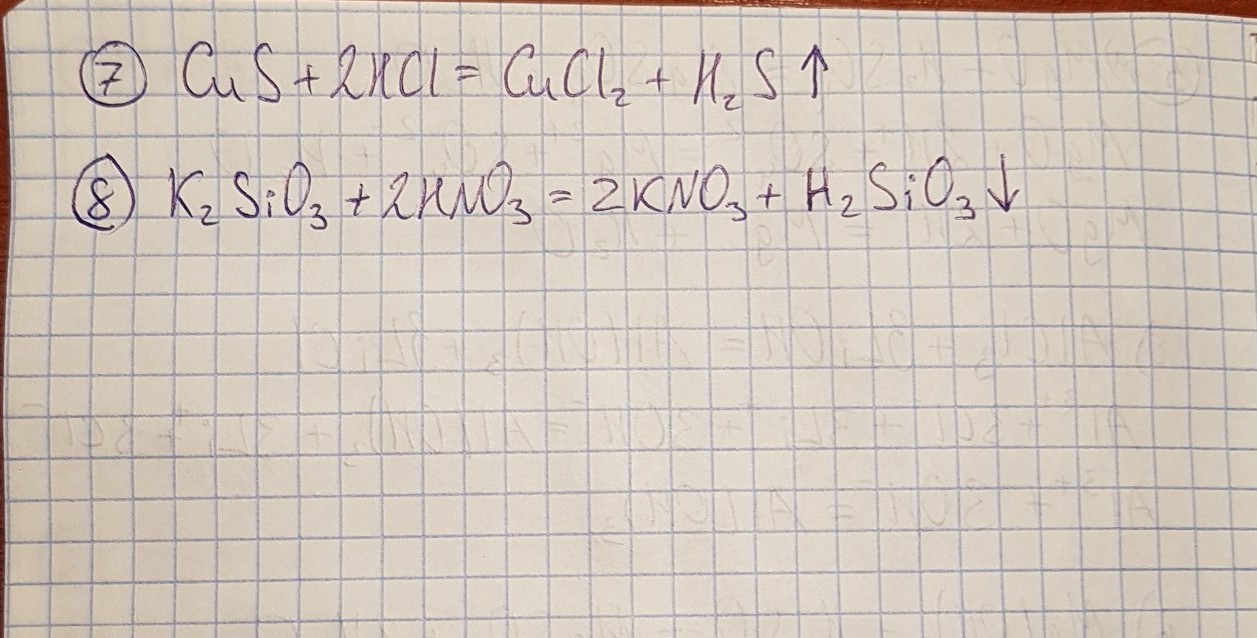 ⑦ CuS + 2HCl = CuCl₂ + H₂S↑
⑧ K₂SiO₃ + 2HNO₃ = 2KNO₃ + H₂SiO₃↓